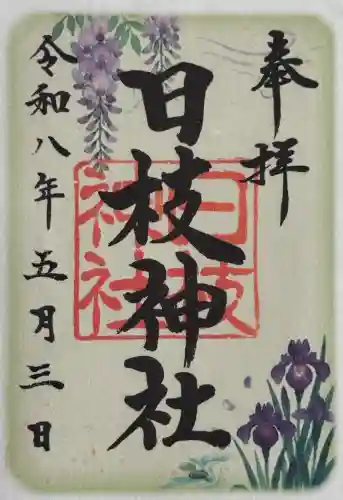 奉拝
日枝神社
日枝
神社
令和八年五月三日